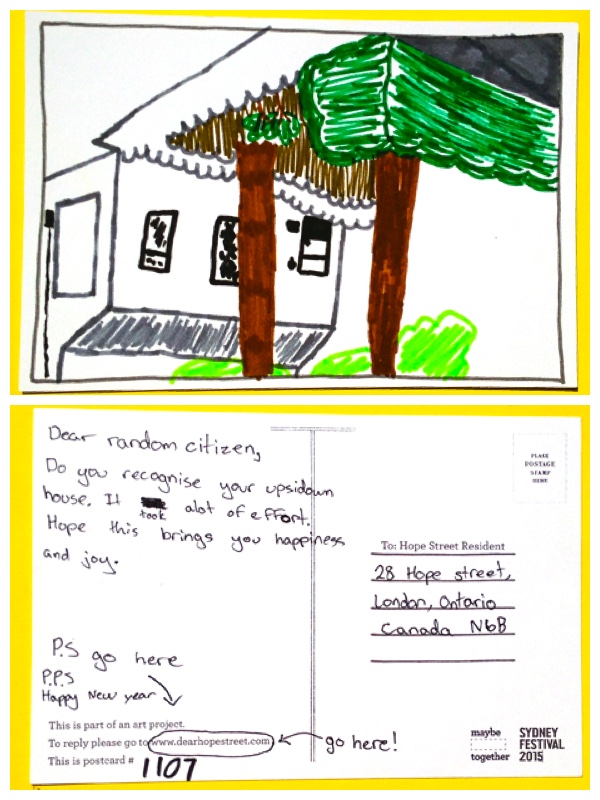 Dear random citizen,
Do you recognise your upsidown
house. It took alot of effort.
Hope this brings you happiness
and joy.
P.S go here
P.P.S
Happy New year
This is part of an art project.
To reply please go to www.dearhopestreet.com
This is postcard # 1107
go here!
PLACE
POSTAGE
STAMP
HERE
To: Hope Street Resident
28 Hope street,
London, Ontario
Canada N6B
maybe
together
SYDNEY
FESTIVAL
2015